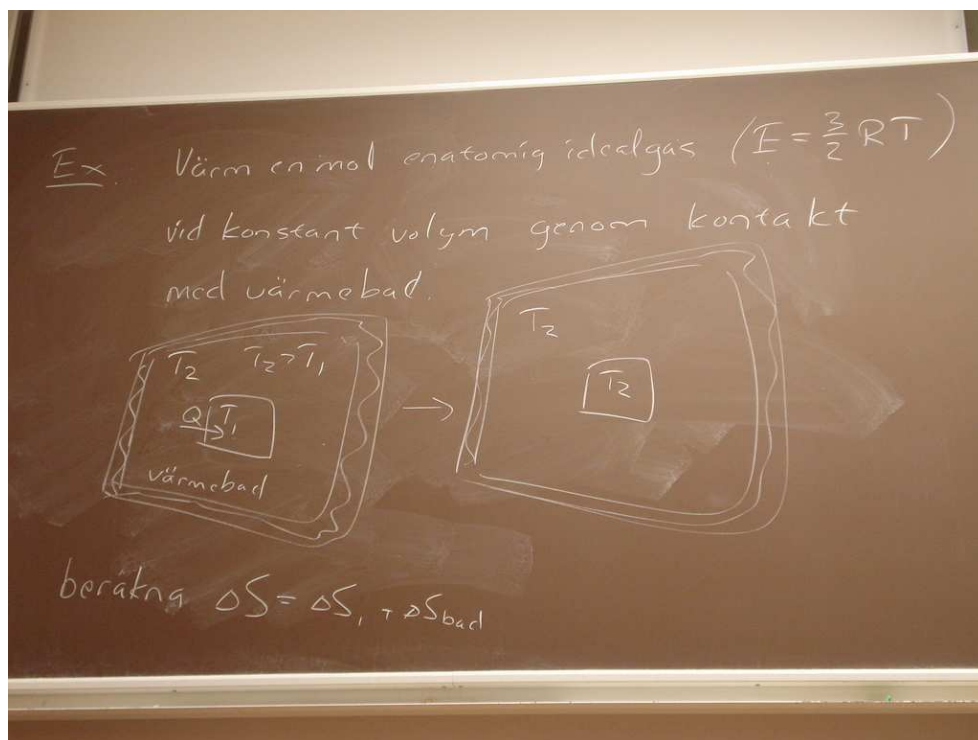 Ex. Värm en mol enatomig idealgas (E = 3/2 RT)
vid konstant volym genom kontakt
med värmebad.
T₂ T₂ > T₁
Q T₁
värmebad
→
T₂
T₂
beräkna ΔS = ΔS₁ + ΔSbad